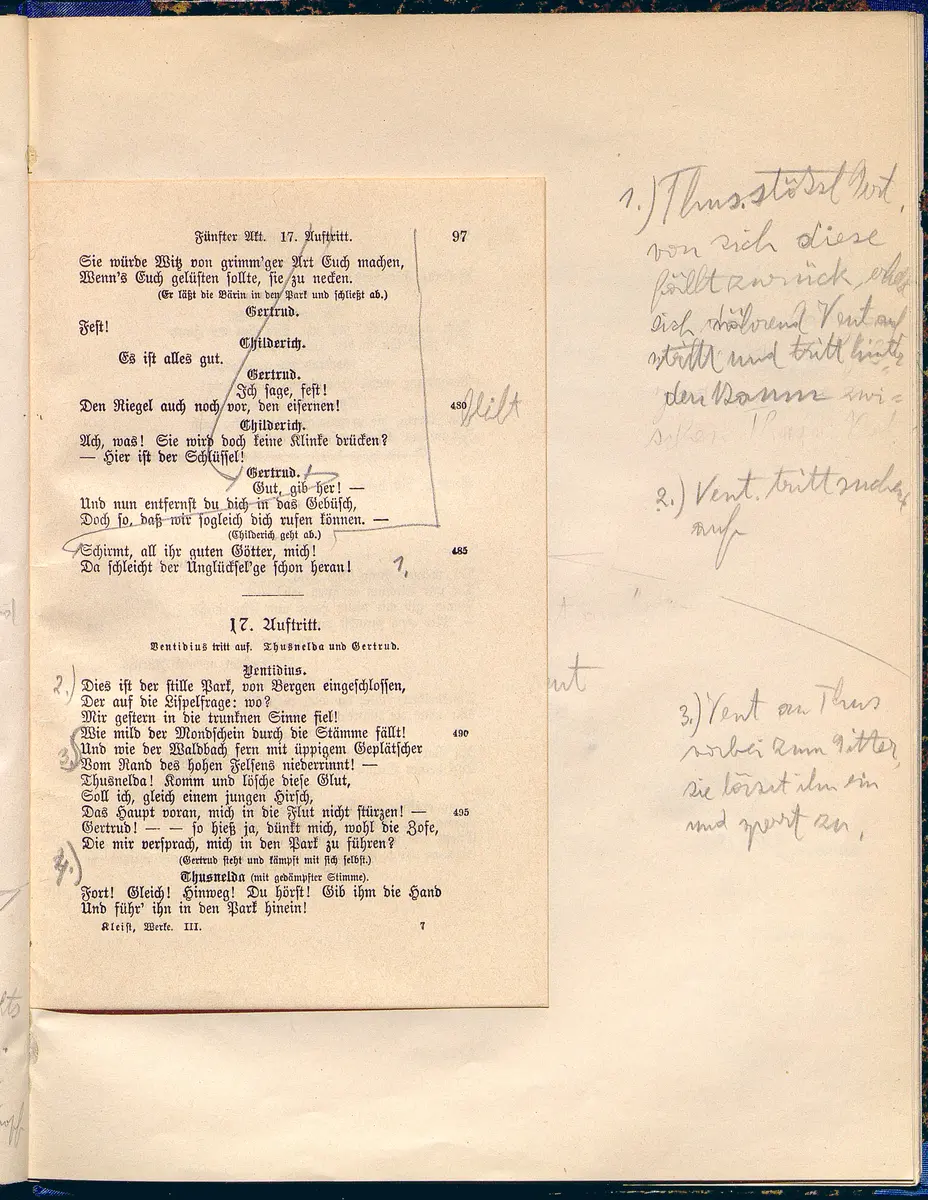 Fünfter Akt. 17. Auftritt. 97
Sie würde Witz von grimm'ger Art Euch machen,
Wenn's Euch gelüsten sollte, sie zu necken.
(Er läßt die Bärin in den Park und schließt ab.)
Gertrud.
Fest!
Childerich.
Es ist alles gut.
Gertrud.
Ich sage, fest!
Den Riegel auch noch vor, den eisernen! 480
Childerich.
Ach, was! Sie wird doch keine Klinke drücken?
— Hier ist der Schlüssel!
Gertrud.
Gut, gib her! —
Und nun entfernst du dich in das Gebüsch,
Doch so, daß wir sogleich dich rufen können. —
(Childerich geht ab.)
Schirmt, all ihr guten Götter, mich! 485
Da schleicht der Unglücksel'ge schon heran! 1.
17. Auftritt.
Ventidius tritt auf. Thusnelda und Gertrud.
Ventidius.
2.) Dies ist der stille Park, von Bergen eingeschlossen,
Der auf die Lispelfrage: wo?
Mir gestern in die trunknen Sinne fiel!
Wie mild der Mondschein durch die Stämme fällt! 490
3.) Und wie der Waldbach fern mit üppigem Geplätscher
Vom Rand des hohen Felsens niederrinnt! —
Thusnelda! Komm und lösche diese Glut,
Soll ich, gleich einem jungen Hirsch,
Das Haupt voran, mich in die Flut nicht stürzen! — 495
Gertrud! — — so hieß ja, dünkt mich, wohl die Zofe,
Die mir versprach, mich in den Park zu führen?
(Gertrud steht und kämpft mit sich selbst.)
4.) Thusnelda (mit gedämpfter Stimme).
Fort! Gleich! Hinweg! Du hörst! Gib ihm die Hand
Und führ' ihn in den Park hinein!
Kleist, Werke. III. 7
1.) Thus. stösst Gert.
von sich diese
fällt zurück,
sich während Vent auf
tritt und tritt hinter
den Baum zwi=
2.) Vent. tritt suchend
auf
3.) Vent an Thus
vorbei zum Gitter,
sie lässt ihn ein
und sperrt zu.